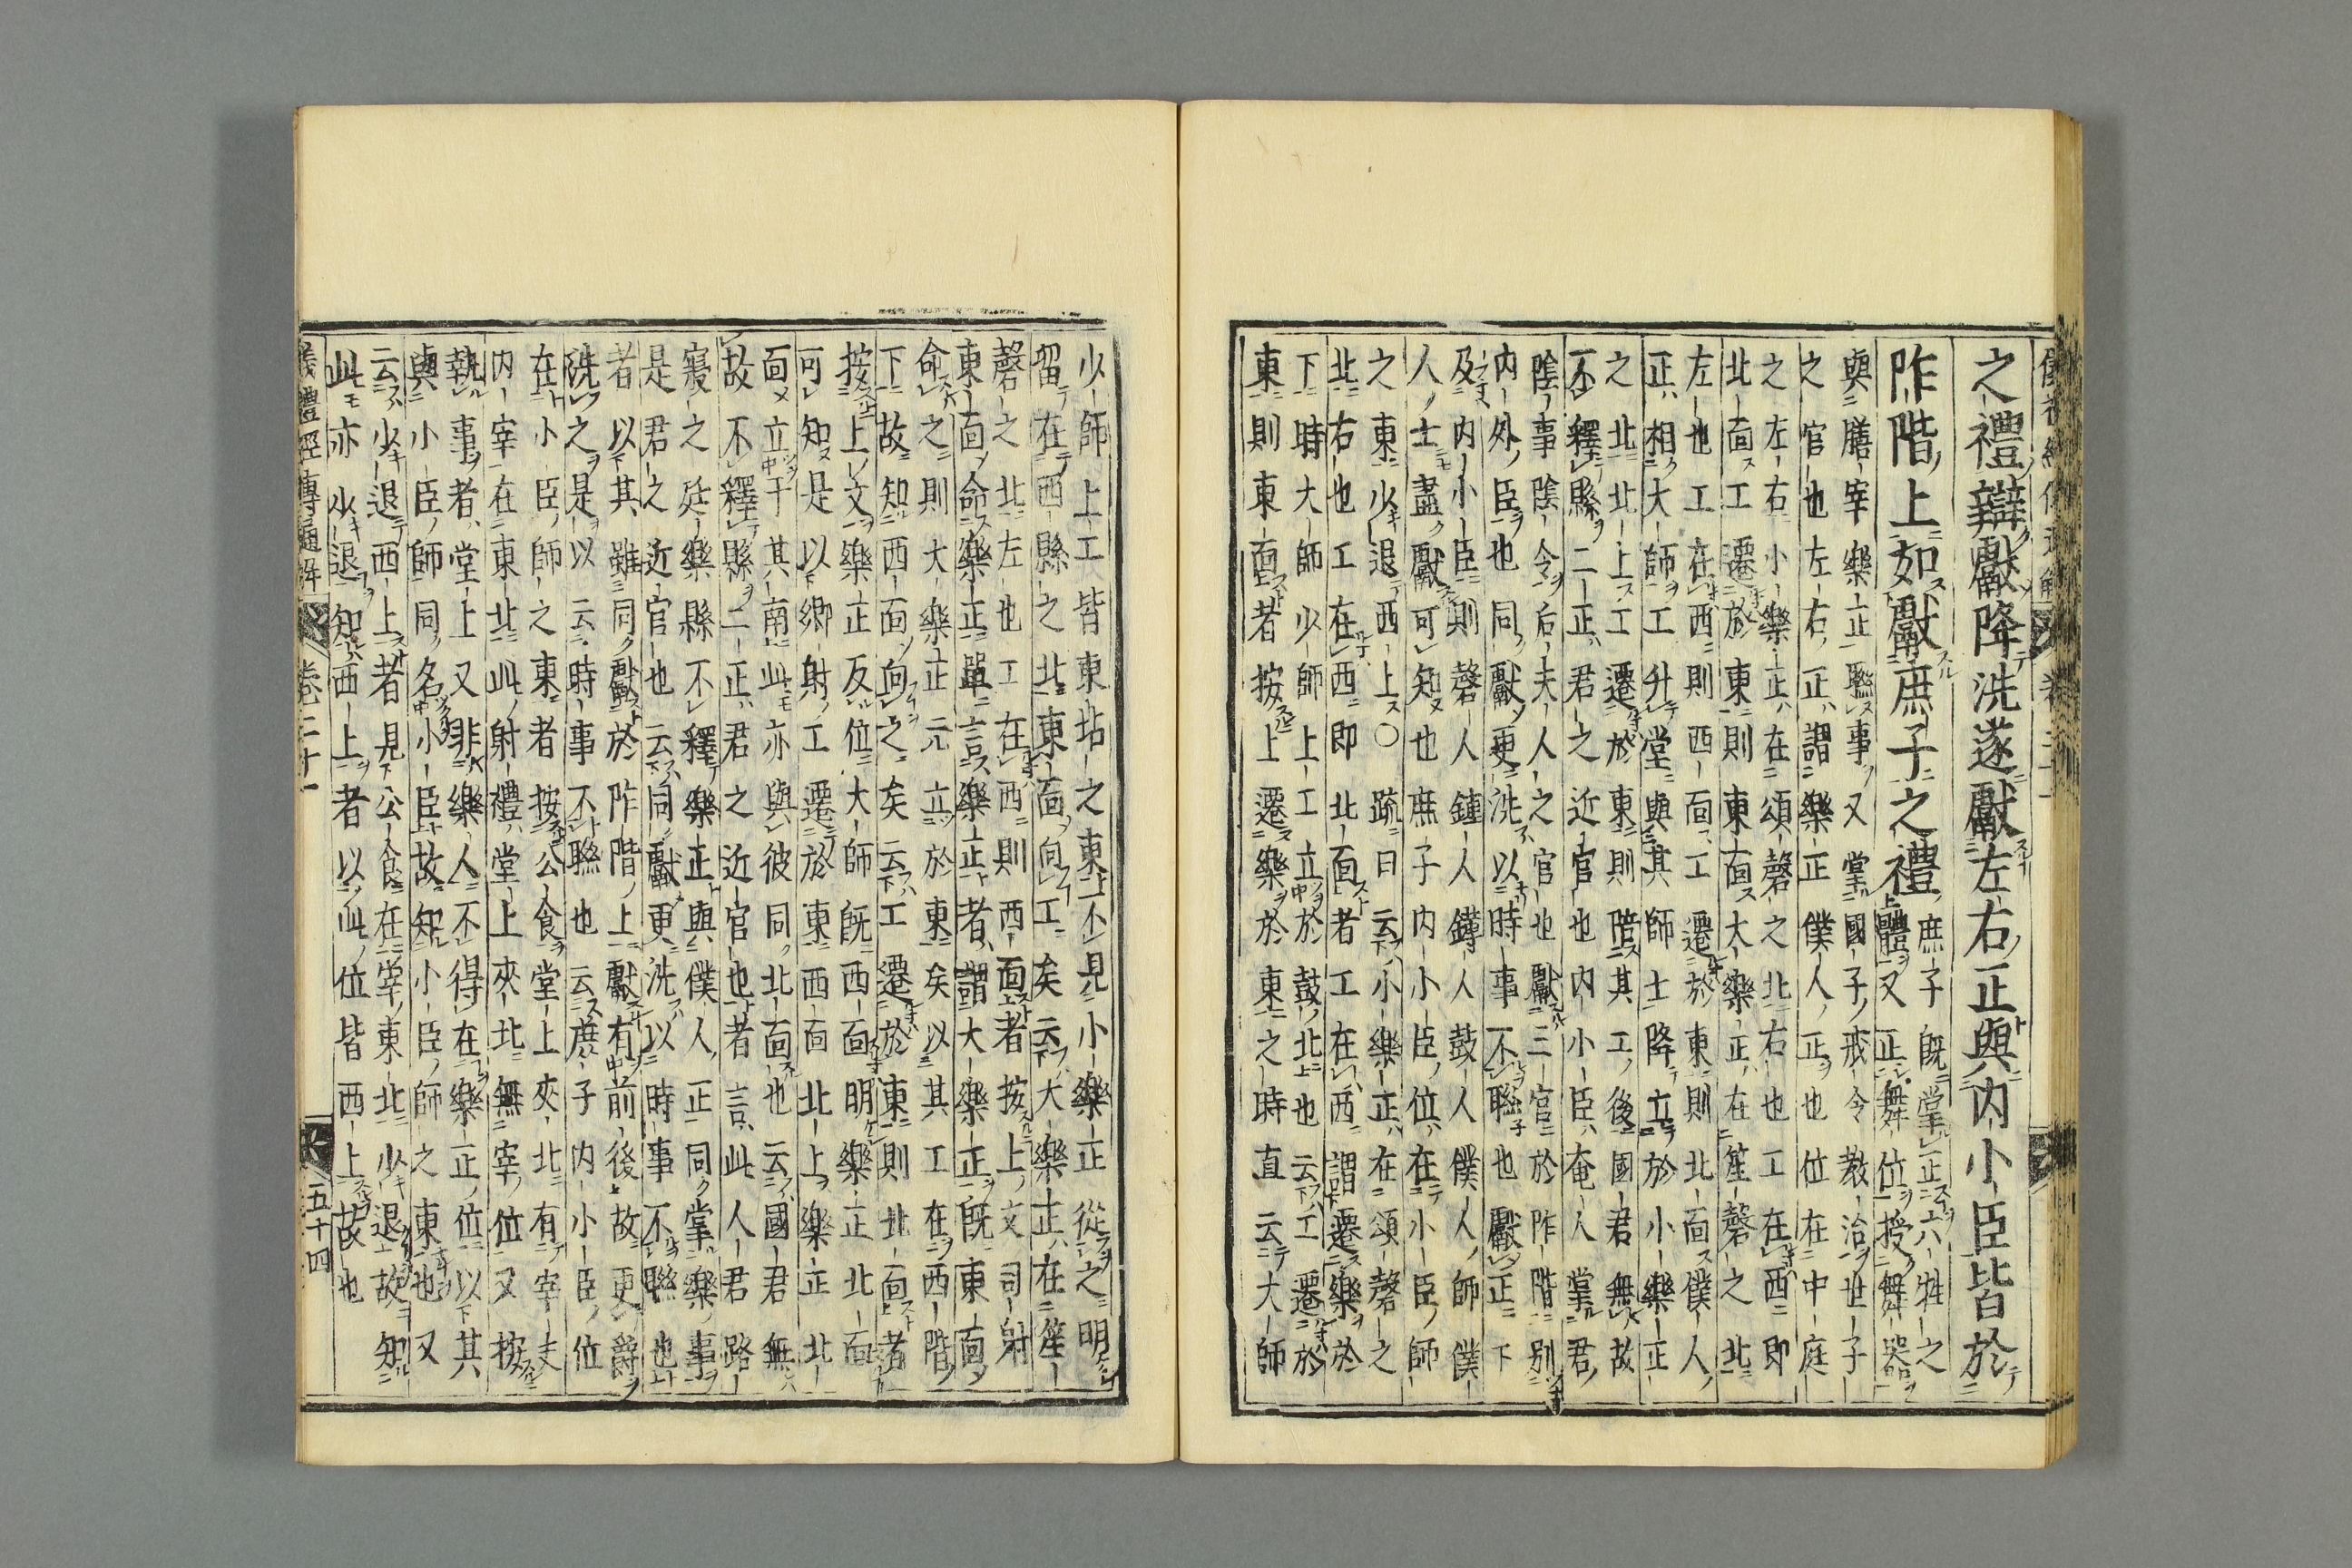 之禮辯獻降洗遂獻左右正與内小臣皆於
阼階上如獻庶子之禮庶子既掌正六牲之
體又正舞位授舞器
與膳宰樂正聯事又掌國子戒令教治世子
之官也左右正謂樂正僕人正也位在中庭
之左右小樂正在頌磬之北右也工在西即
北面工遷於東則東面大樂正在笙磬之北
左也工在西則西面工遷於東則北面僕人
正相大師工升堂與其師士降立於小樂正
之北北上工遷於東則陪其工後國君無故
不釋縣二正君之近官也内小臣奄人掌君
陰事陰令后夫人之官也獻三官於阼階別
内外臣也同獻更洗以時事不聯也獻正下
及内小臣則磬人鍾人鎛人鼓人僕人師僕
人士盡獻可知也庶子内小臣位在小臣師
之東少退西上○疏曰云小樂正在頌磬之
北右也工在西即北面者工在西謂遷樂於
下時大師少師上工立於鼓北也云工遷於
東則東面者按上遷樂於東之時直云大師
少師上工皆東坫之東不見小樂正從之明
留在西縣之北東面向工矣云大樂正在笙
磬之北左也工在西則西面者按上文司射
東面命樂正單言樂正者謂大樂正既東面
命之則大樂正元立於東矣以其工在西階
下故知西面向之矣云工遷於東則北面者
按上文樂正反位大師既西面明樂正北面
可知是以鄉射工遷於東西面北上樂正北
面立于其南此亦與彼同北面也云國君無
故不釋縣二正君之近官也者言此人君路
寢之廷樂縣不釋樂正與僕人正同掌樂事
是君之近官也云同獻更洗以時事不聯也
者以其雖同獻於阼階上獻有前後故更爵
洗之是以云時事不聯也云庶子内小臣位
在小臣師之東者按公食堂上夾北有宰夫
内宰在東北此射禮堂上夾北無宰位又按
執事者堂上又非樂人不得在樂正位以其
與小臣師同名小臣故知小臣師之東也又
云少退西上者見公食在宰東北少退故知
此亦少退知西上者以此位皆西上故也
儀禮經傳通解 卷二十一 五十四